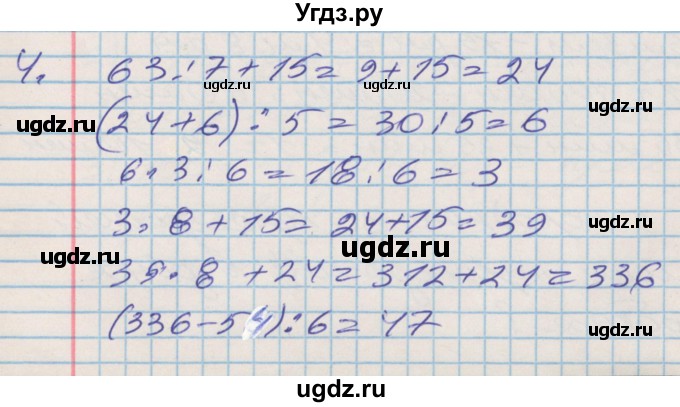 Угдз.ру
4. 63 : 7 + 15 = 9 + 15 = 24
ugdz.ru ugdz.ru
ugdz.ru ugdz.ru
(24 + 6) : 5 = 30 : 5 = 6
6 · 3 : 6 = 18 : 6 = 3
3 · 8 + 15 = 24 + 15 = 39
ugdz.ru ugdz.ru ugdz.ru
39 · 8 + 24 = 312 + 24 = 336
(336 - 54) : 6 = 47
ugdz.ru
ugdz.ru